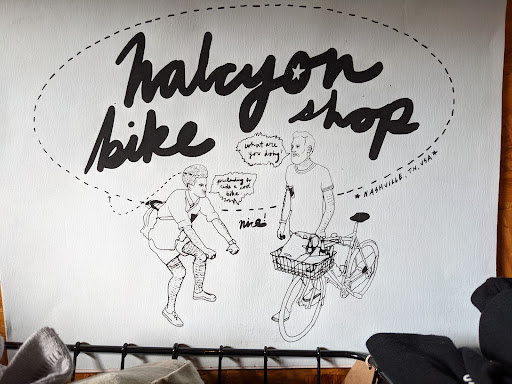 halcyon
bike shop
what are
you doing
pretending to
ride a cool
bike
nice!
★ NASHVILLE, TN, USA ★